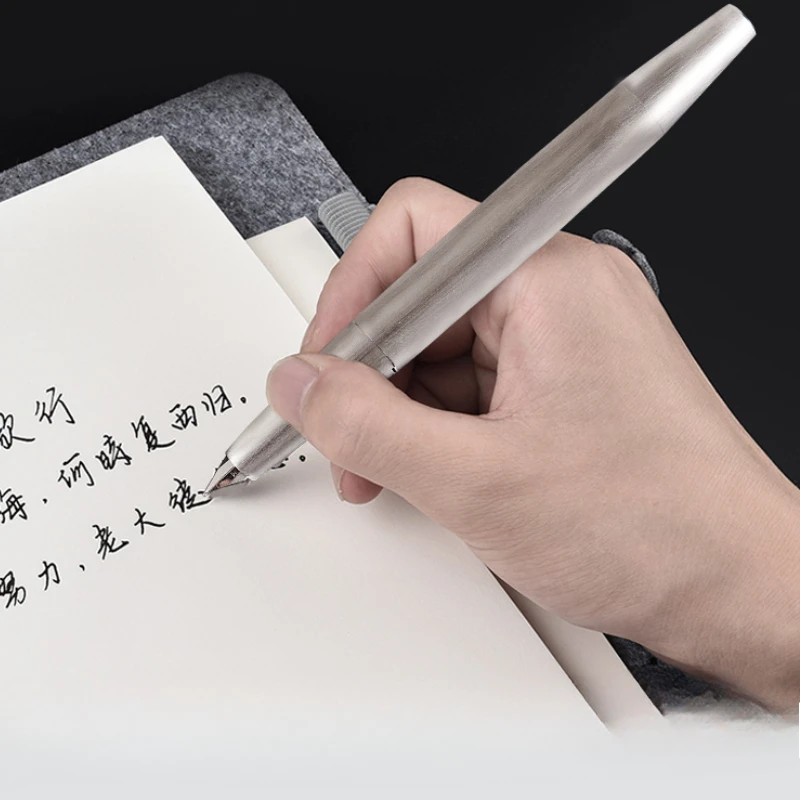 歌行
海，何時复西归。
努力，老大徒